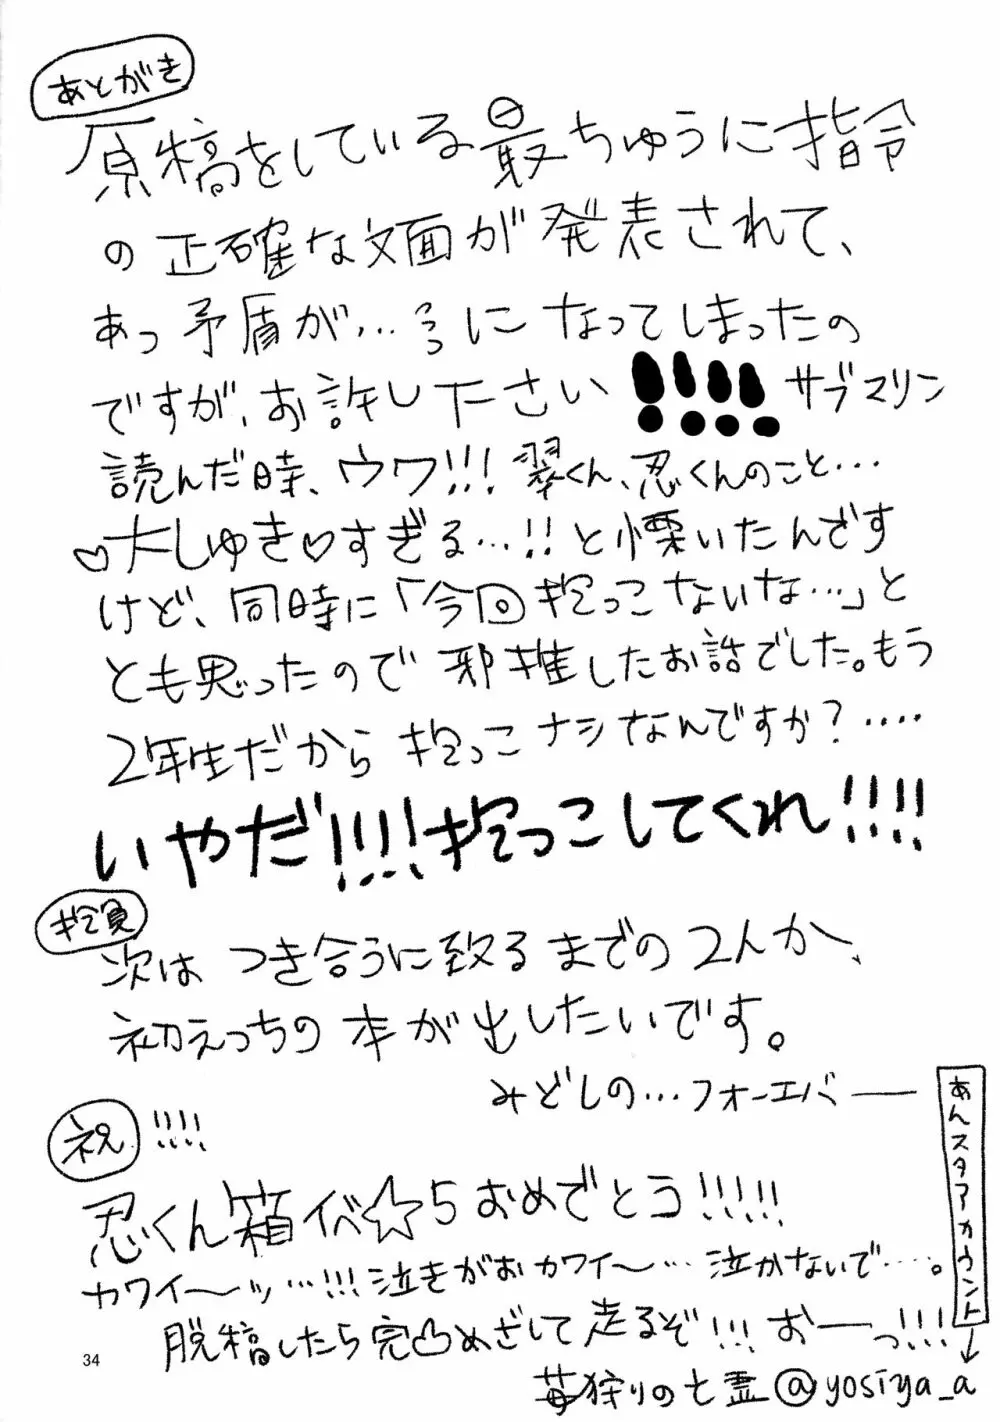 あとがき
原稿をしている最ちゅうに指令
の正確な文面が発表されて、
あっ矛盾が…っっになってしまったの
ですが、お許し下さい!!!! サブマリン
読んだ時、ウワ!!! 翠くん、忍くんのこと…
♡大しゅき♡すぎる…!!と慄いたんです
けど、同時に「今回抱っこないな…」と
とも思ったので邪推したお話でした。もう
2年生だから抱っこナシなんですか?‥‥
いやだ!!!!抱っこしてくれ!!!!
次は つき合うに致るまでの2人か、
初えっちの本が出したいです。
みどしの…フォーエバー
祝!!!!
忍くん箱イベ☆5おめでとう!!!!!
カワイ〜ッ…!!!泣きがおカワイ〜…泣かないで……。
脱稿したら完凸めざして走るぞ!!!おーっ!!!!
あんスタアカウント↓
苺狩りの七霊@yosiya_a
34